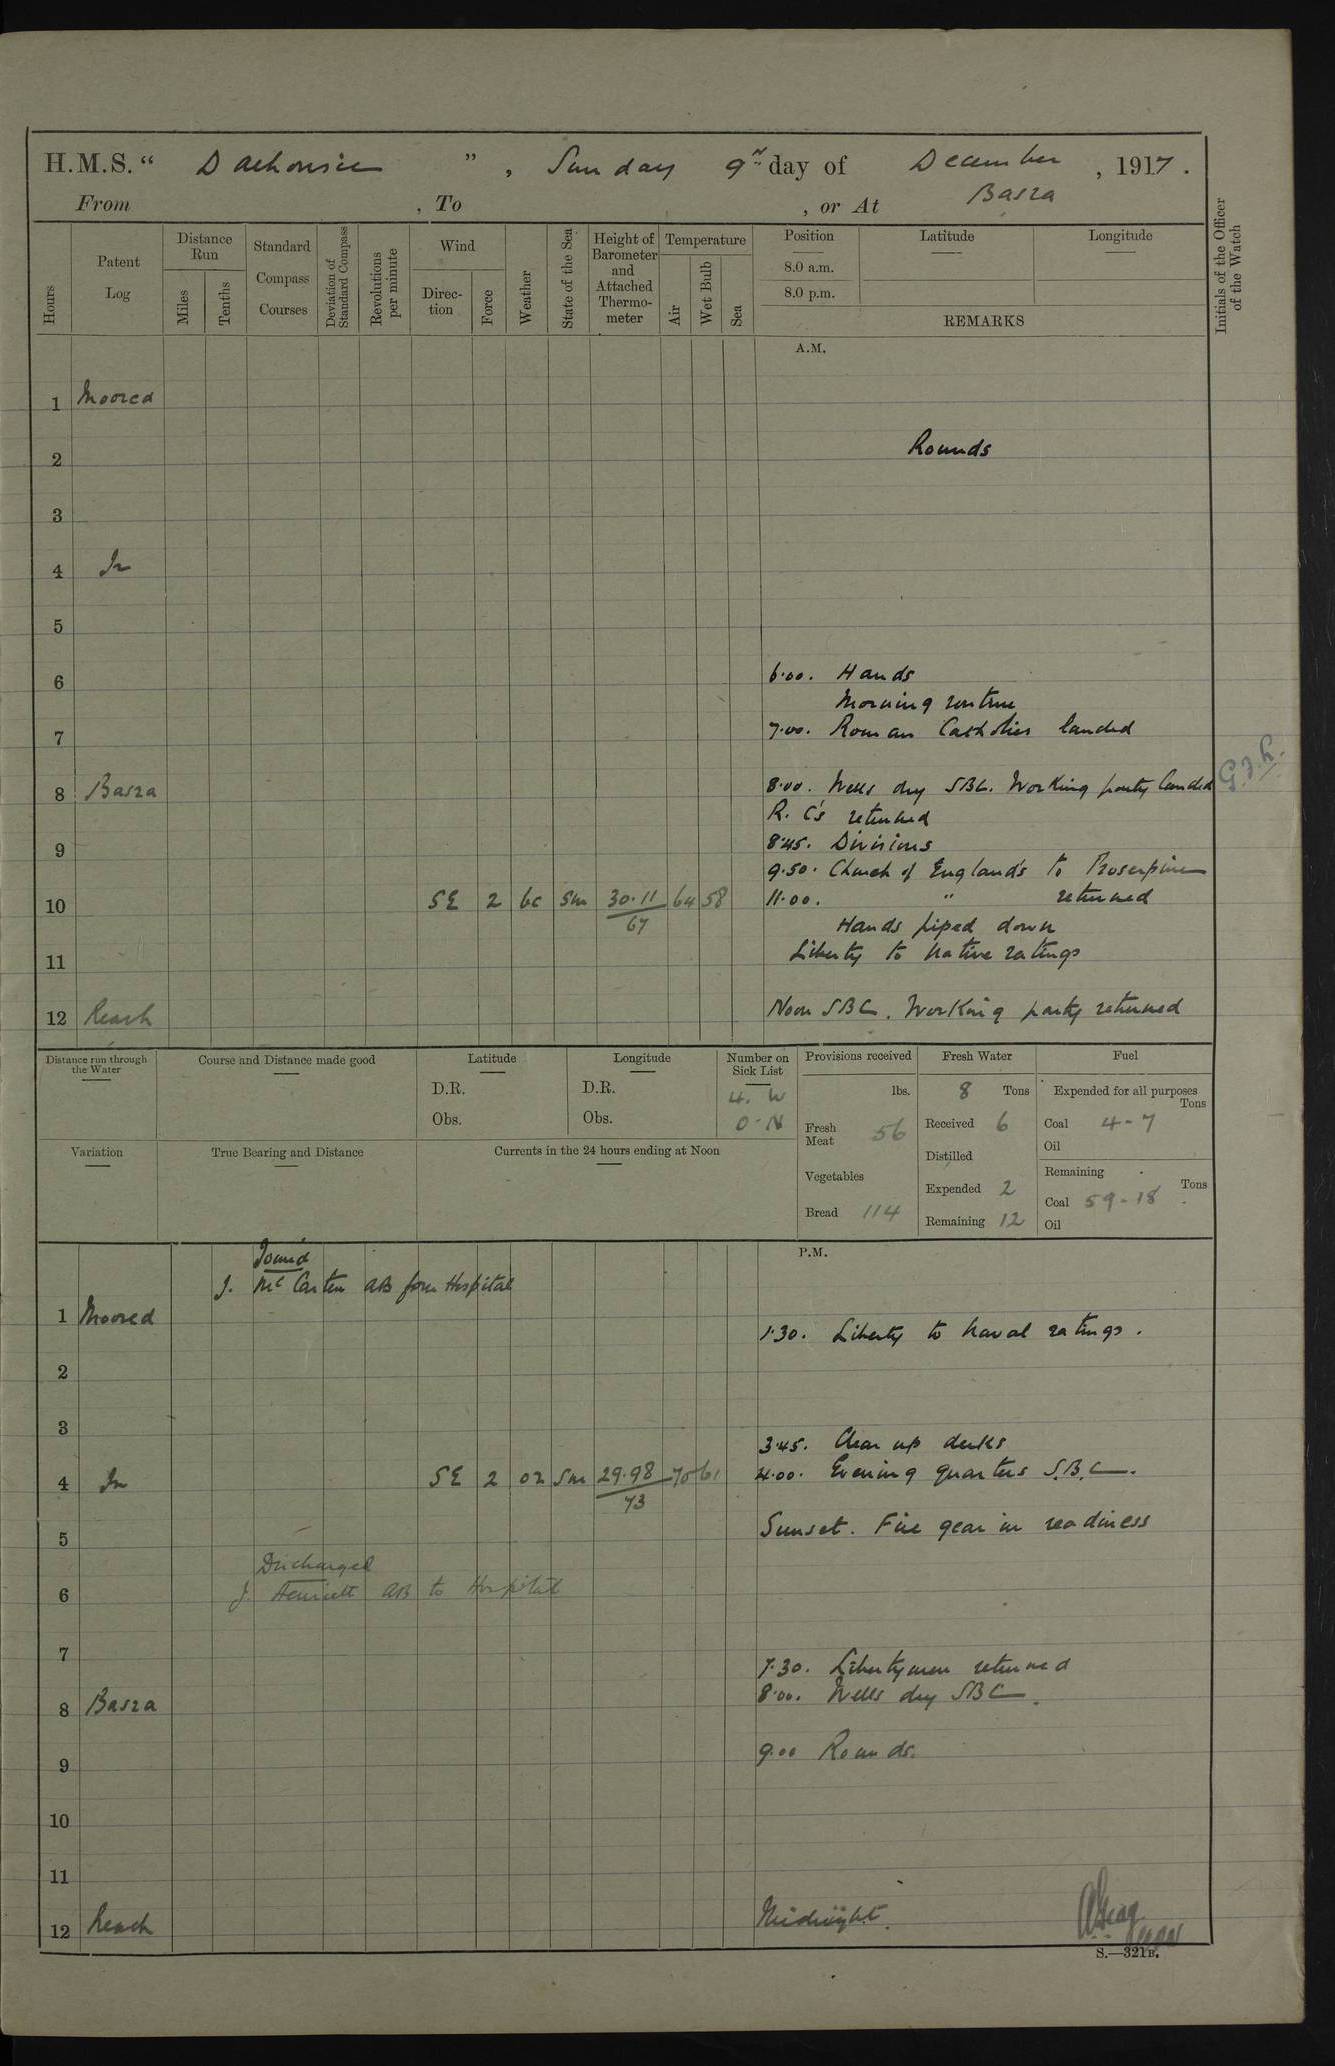 H.M.S. “ Dalhousie ”, Sunday 9th day of December, 1917.
From , To , or At Basra
Hours
Patent Log
Distance Run
Miles
Tenths
Standard Compass Courses
Deviation of Standard Compass
Revolutions per minute
Wind
Direction
Force
Weather
State of the Sea
Height of Barometer and Attached Thermometer
Temperature
Air
Wet Bulb
Sea
Position
8.0 a.m.
8.0 p.m.
Latitude
Longitude
REMARKS
Initials of the Officer of the Watch
A.M.
1 Moored
2 Rounds
3
4 In
5
6 6.00. Hands
Morning routine
7 7.00. Roman Catholics landed
8 Basra 8.00. Wells dry SBC. Working party landed
R. C's returned
9 8.45. Divisions
9.50. Church of England's to Proserpine
10 SE 2 bc Sm 30.11 64 58 11.00. " returned
67
Hands piped down
11 Liberty to Native ratings
12 Reach Noon SBC. Working party returned
Distance run through the Water
Course and Distance made good
Latitude
D.R.
Obs.
Longitude
D.R.
Obs.
Number on Sick List
4. W
0. N
Provisions received
lbs.
Fresh Meat 56
Vegetables
Bread 114
Fresh Water
8 Tons
Received 6
Distilled
Expended 2
Remaining 12
Fuel
Expended for all purposes
Tons
Coal 4-7
Oil
Remaining
Tons
Coal 59-18
Oil
Variation
True Bearing and Distance
Currents in the 24 hours ending at Noon
P.M.
Joined
J. McCarten AB from Hospital
1 Moored
1.30. Liberty to Naval ratings.
2
3
3.45. Clear up decks
4 In SE 2 Sm 29.98 70 61 4.00. Evening quarters S.B.C.
73
5 Sunset. Fire gear in readiness
Discharged
6 J. AB to Hospital
7 7.30. Libertymen returned
8 Basra 8.00. Wells dry SBC.
9 9.00 Rounds.
10
11
12 Reach Midnight.
S.—321B.